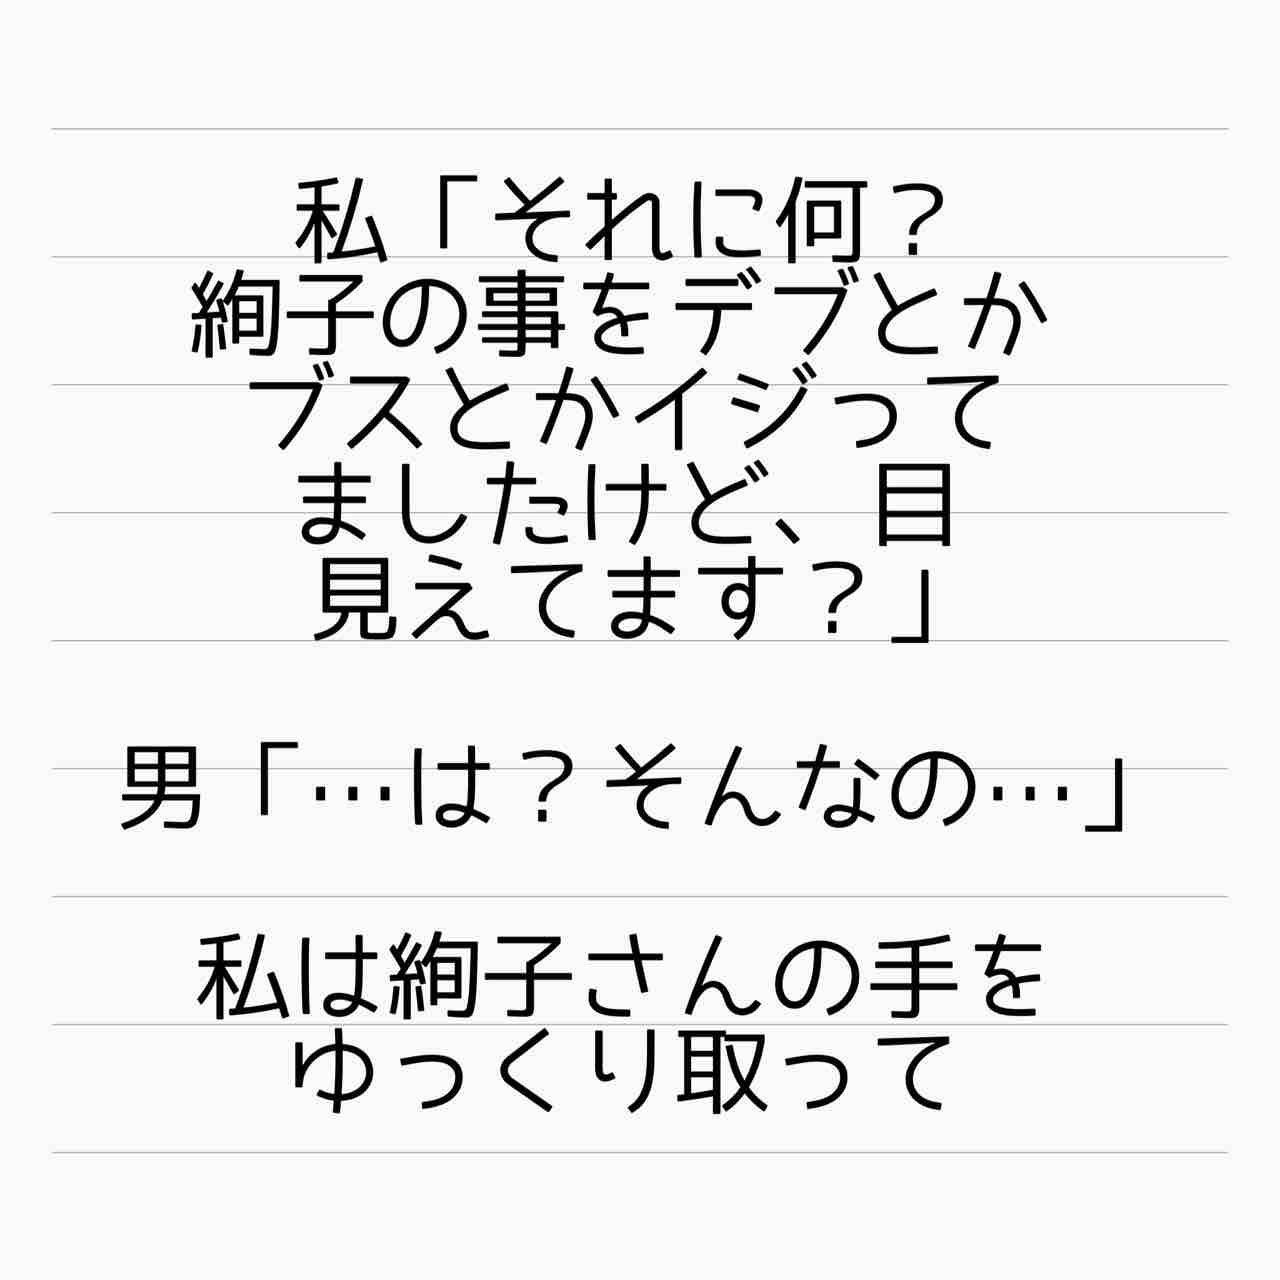 私「それに何？
絢子の事をデブとか
ブスとかイジって
ましたけど、目
見えてます？」
男「…は？そんなの…」
私は絢子さんの手を
ゆっくり取って